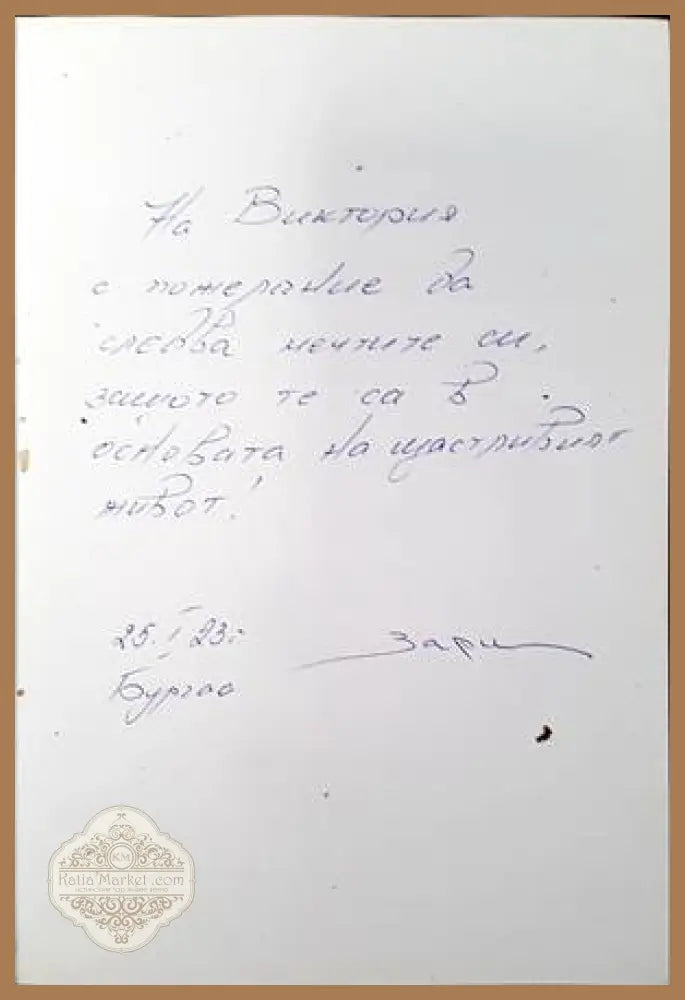 На Виктория
с пожелание да
следва мечтите си,
защото те са в
основата на щастливият
живот!
25. I 23г.
Бургас
Зари
KM
Katia Market .com